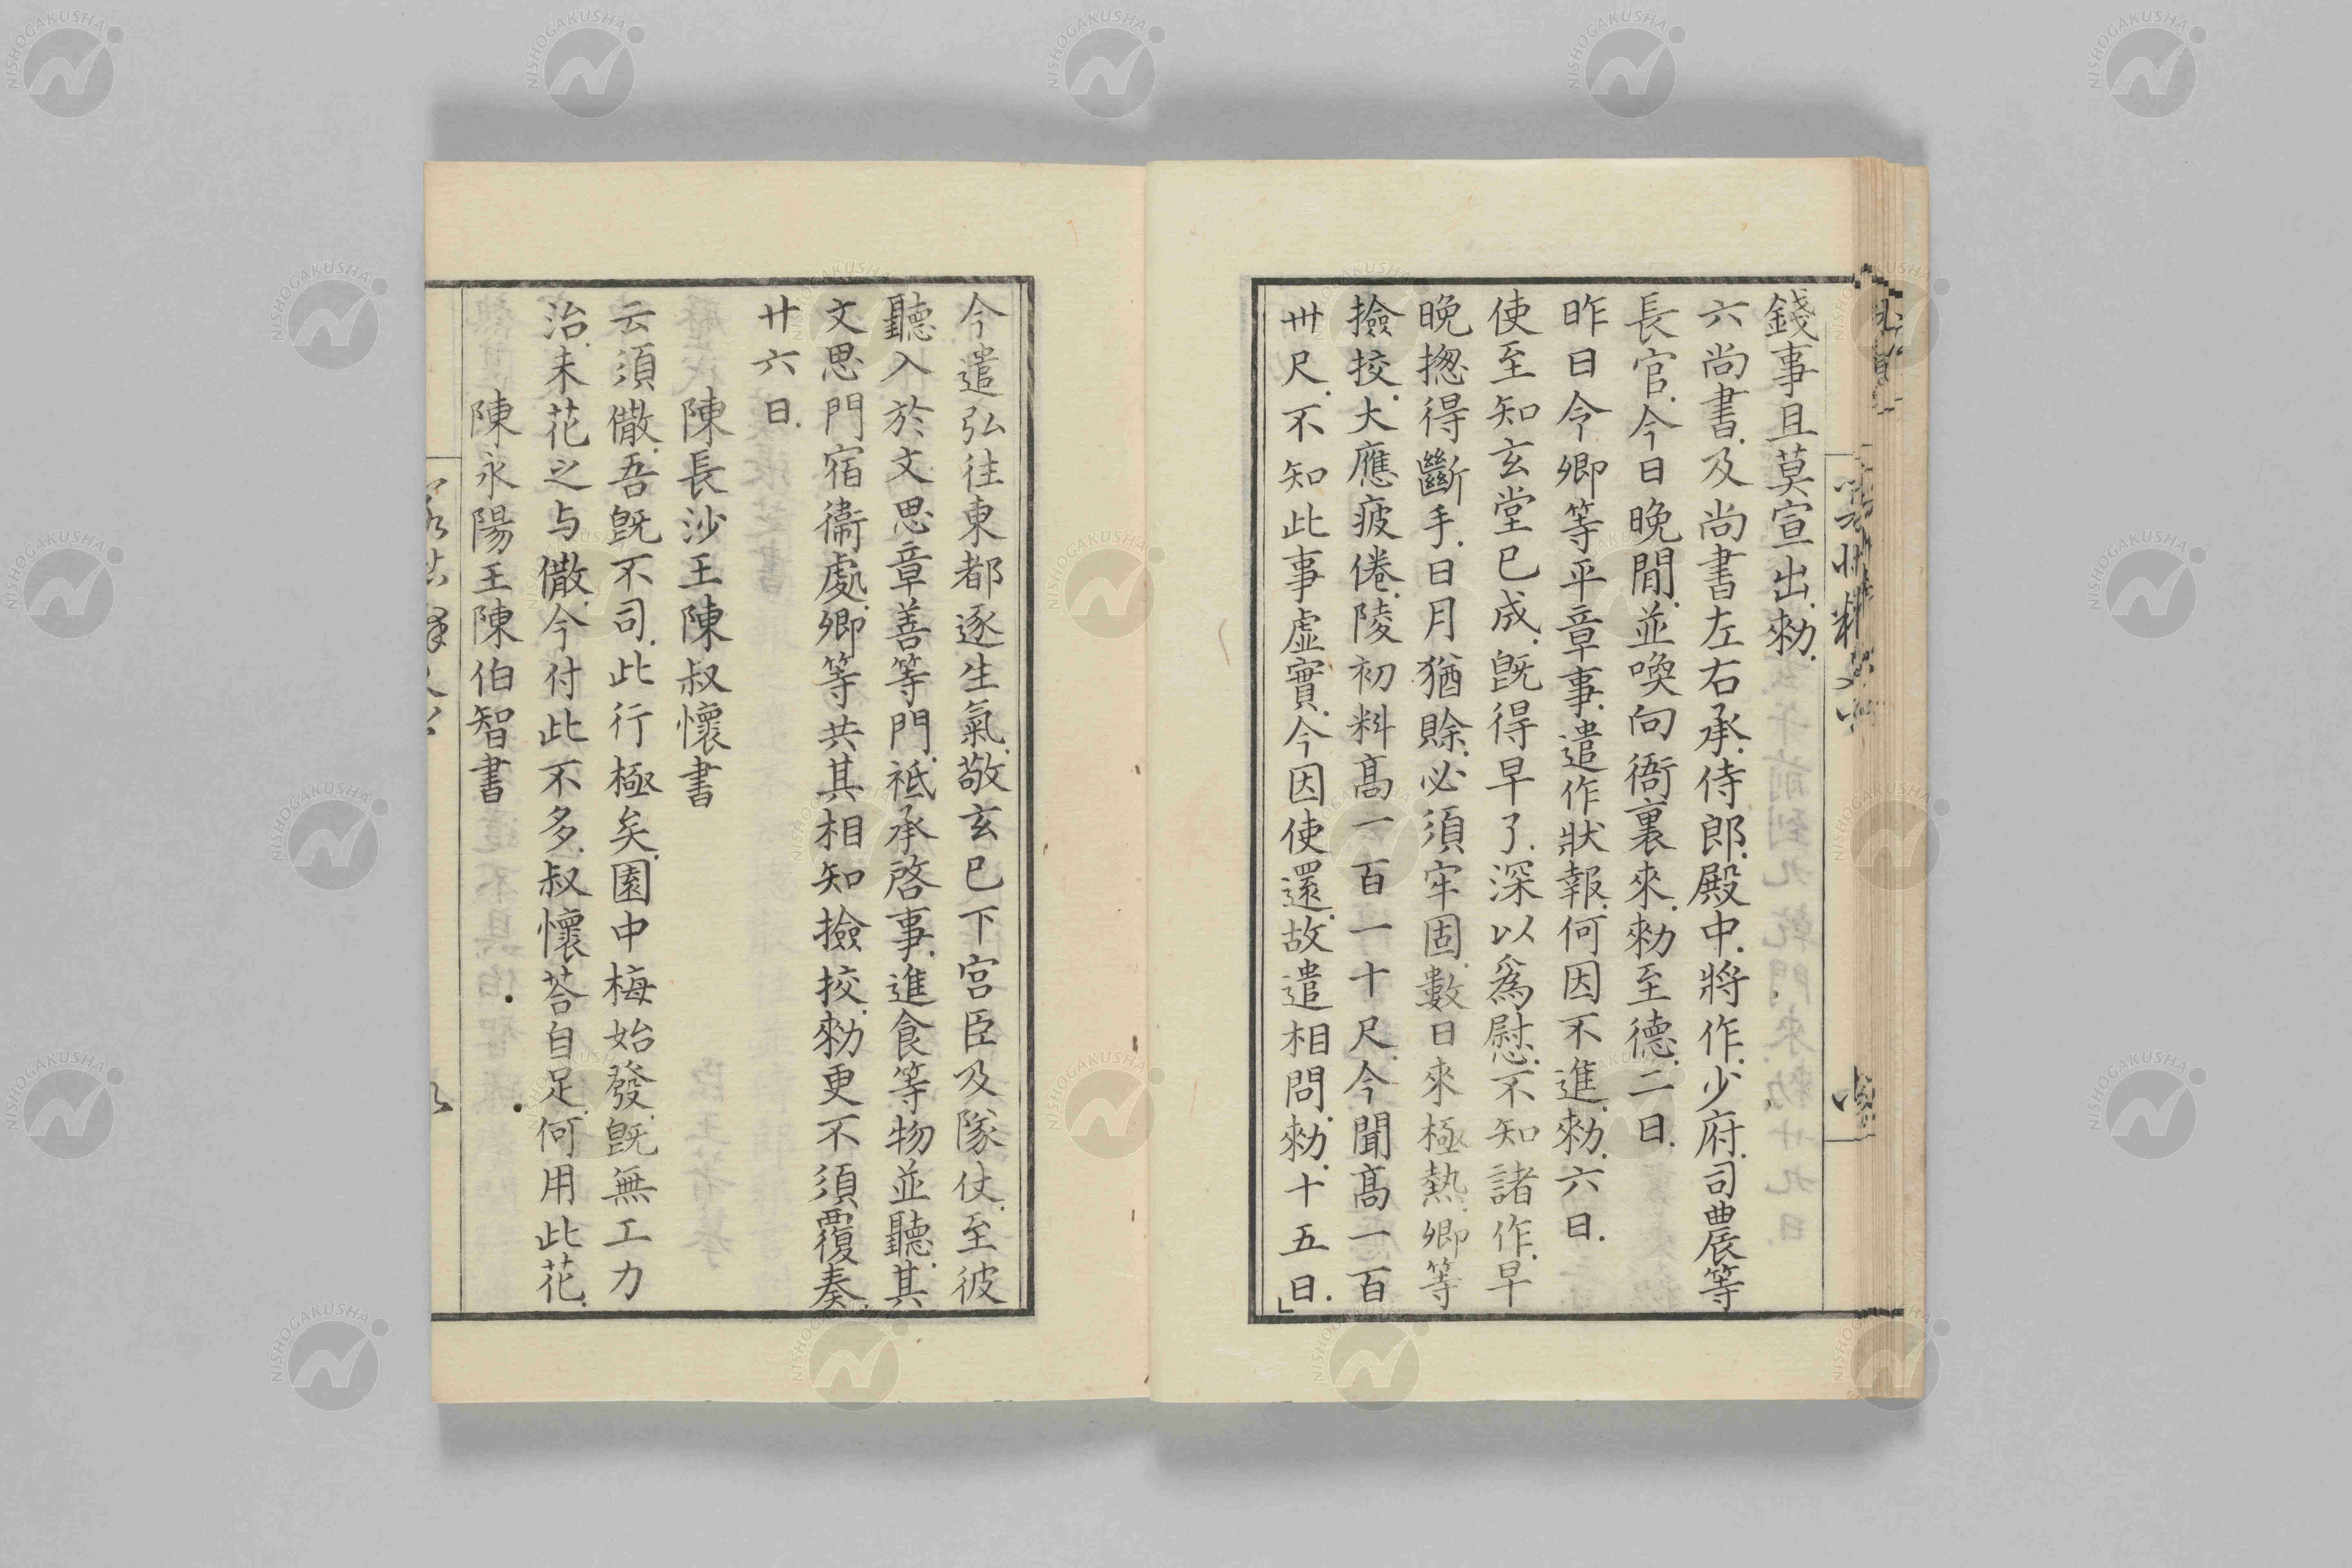 錢事且莫宣出.勑.
六尚書.及尚書左右承.侍郎.殿中.將作.少府.司農等
長官.今日晚間.並喚向衙裏來.勑至德.二日.
昨日令卿等平章事.遣作狀報.何因不進.勑.六日.
使至知玄堂已成.旣得早了.深以爲慰.不知諸作.早
晚揔得斷手.日月猶賖.必須牢固.數日來極熱.卿等
撿挍.大應疲倦.陵初料高一百一十尺.今聞高一百
卅尺.不知此事虛實.今因使還.故遣相問.勑.十五日.」
今遣弘往東都逐生氣.敬玄已下宮臣及隊仗.至彼
聽入於文思章善等門.祗承啓事.進食等物並聽.其
文思門宿衞處.卿等共其相知撿挍.勑更不須覆奏.
廿六日.
陳長沙王陳叔懷書
云須儆.吾旣不司.此行極矣.園中梅始發.旣無工力
治.未花之与儆.今付此不多.叔懷荅自足.何用此花.
陳永陽王陳伯智書
NISHOGAKUSHA